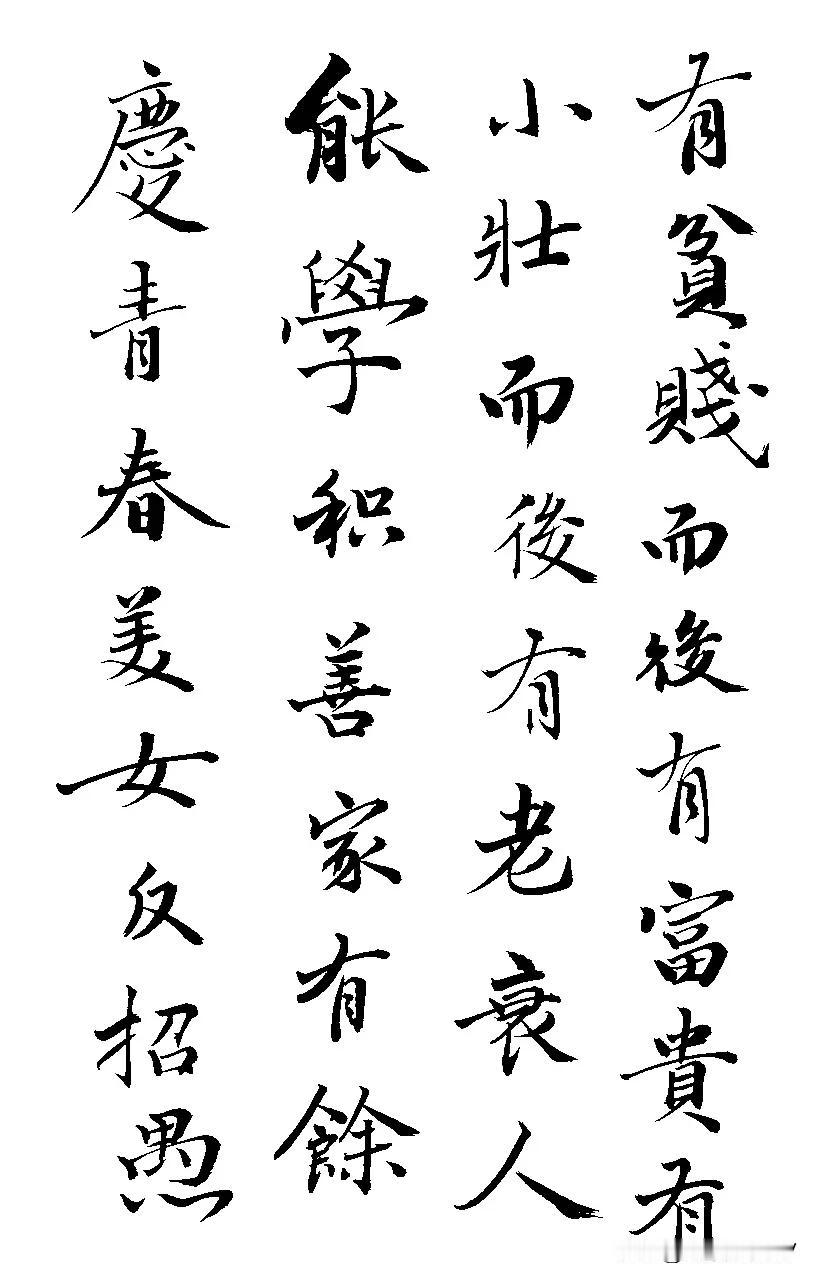 有貧賤而後有富貴有
小壯而後有老衰人
能學积善家有餘
慶青春美女反招愚